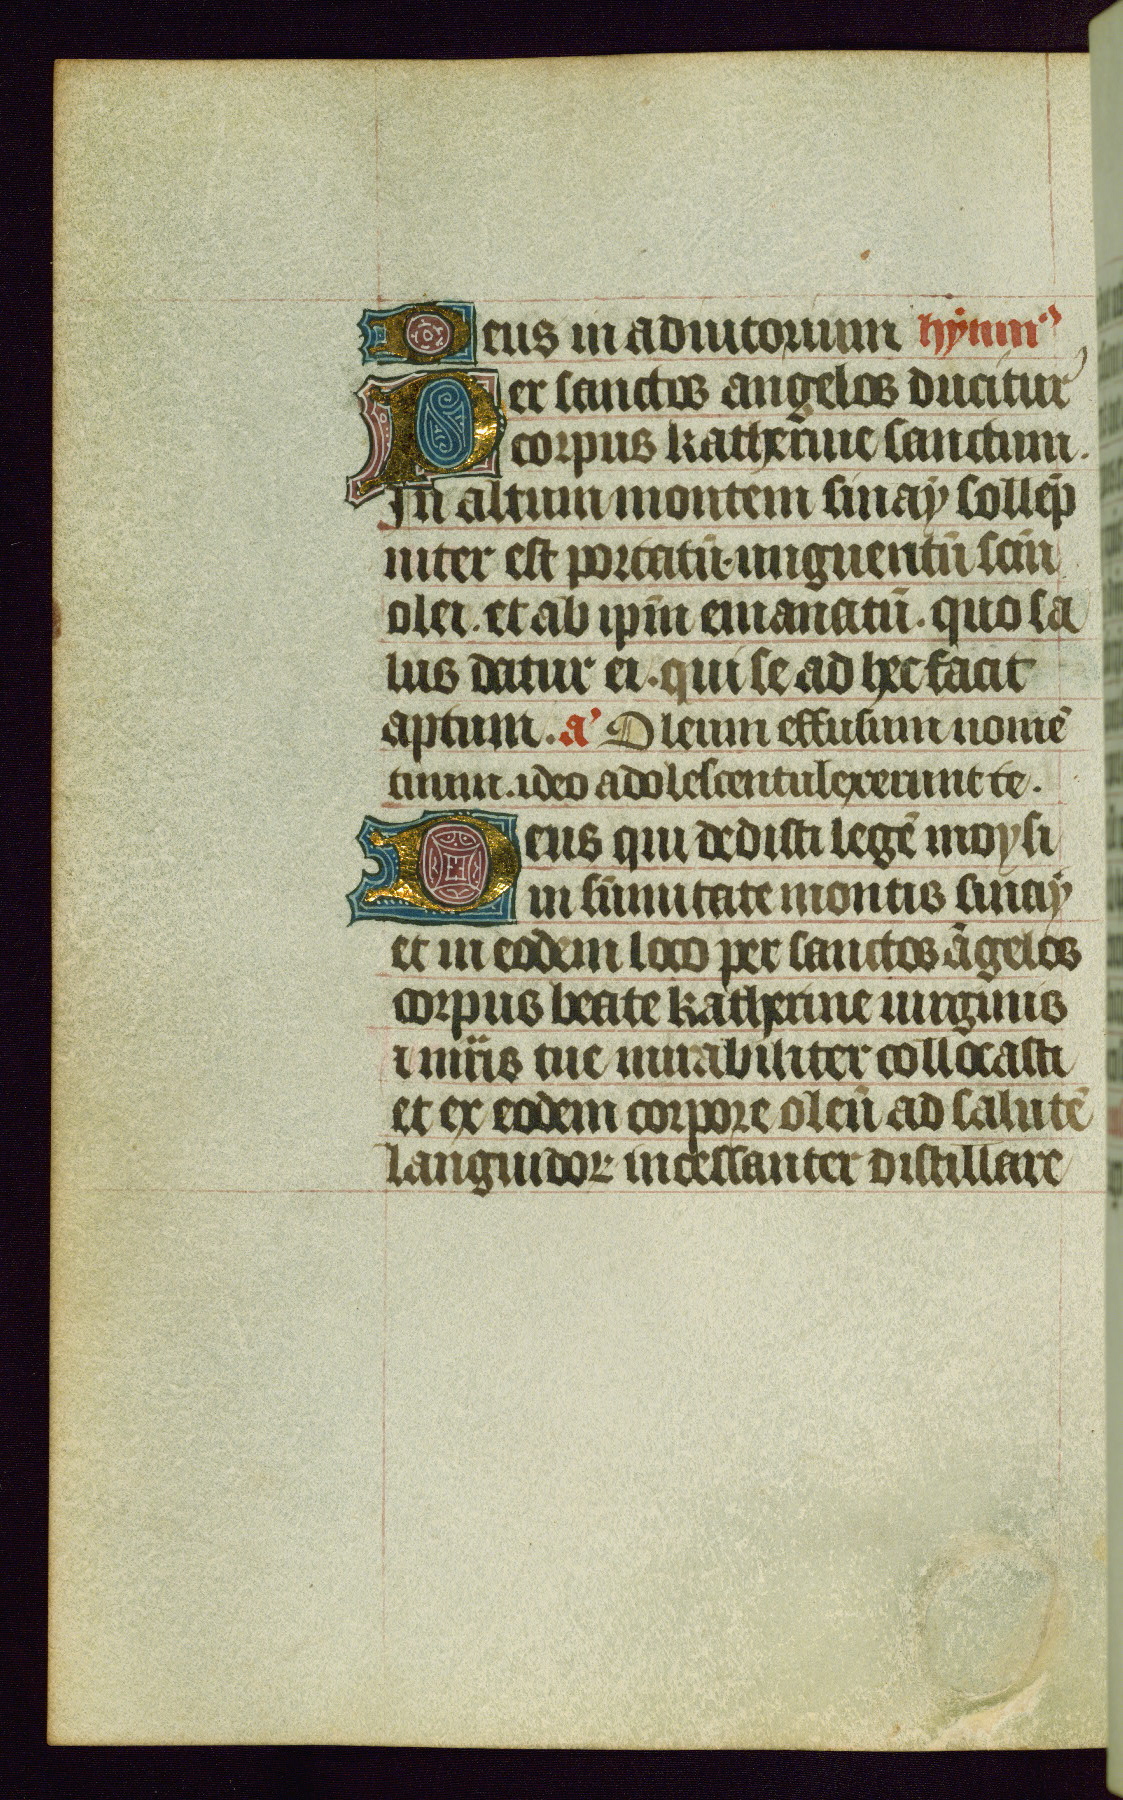 Deus in adiutorium hÿmn᾽
Per sanctos angelos ducitur
corpus katherine sanctum.
In altum montem sinaÿ sollēp
niter est portatū. unguentū scm̄
olei. et ab ip̄m emanatū. quo sa
lus datur ei. qui se ad hec facit
aptum. a᾽ Oleum effusum nomē
tuum. ideo adolescentulexerunt te.
Deus qui dedisti legē moysi
in sūmitate montis sinaÿ
et in eodem loco per sanctos āgelos
corpus beate katherine uirginis
⁊ mr̄is tue mirabiliter collocasti
et ex eodem corpore oleū ad salutē
languidoꝝ incessanter distillare